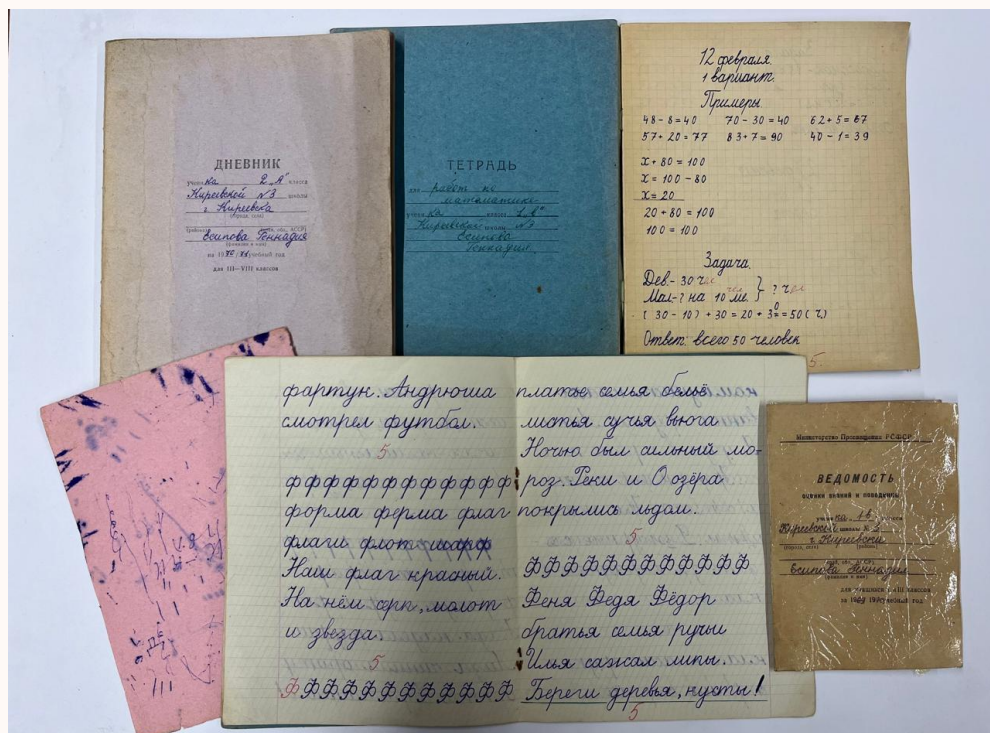 ДНЕВНИК
ученика 2 „А" класса
Киреевской №3 школы
г. Киреевска
Есипова Геннадия
на 1970/71 учебный год
для III—VIII классов
ТЕТРАДЬ
для работ по
математике
ученика класса 1 „в"
Киреевской школы №3
Есипова
Геннадия
12 февраля.
1 вариант.
Примеры
48 - 8 = 40 70 - 30 = 40 62 + 5 = 67
57 + 20 = 77 83 + 7 = 90 40 - 1 = 39
x + 80 = 100
x = 100 - 80
x = 20
20 + 80 = 100
100 = 100
Задача.
Дев. - 30 чел
Мал - ? на 10 ме. } ? чел
(30 - 10) + 30 = 20 + 30 = 50 (ч)
Ответ: всего 50 человек
5
фартук. Андрюша
смотрел футбол.
5
ффффффффффф
форма ферма флаг
флаги флот шарф
Наш флаг красный.
На нём серп, молот
и звезда.
5
ФФФФФФФФФФФФ
платье семья бельё
листья сучья вьюга
Ночью был сильный мо-
роз. Реки и Оозёра
покрылись льдом.
5
ФФФФФФФФФФФФ
Феня Федя Фёдор
братья семья ручьи
Илья сажал липы.
Береги деревья, кусты!
5
Министерство Просвещения РСФСР
ВЕДОМОСТЬ
оценки знаний и поведения
ученика 1 в класса
Киреевской школы № 3
г. Киреевска
Есипова Геннадия
для учащихся I—III классов